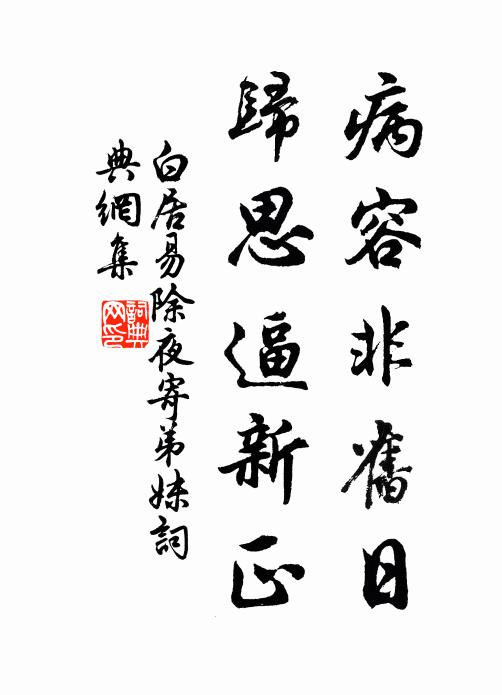 病容非舊日
歸思逼新正
白居易除夜寄弟妹詞
典網集
詞典
网印